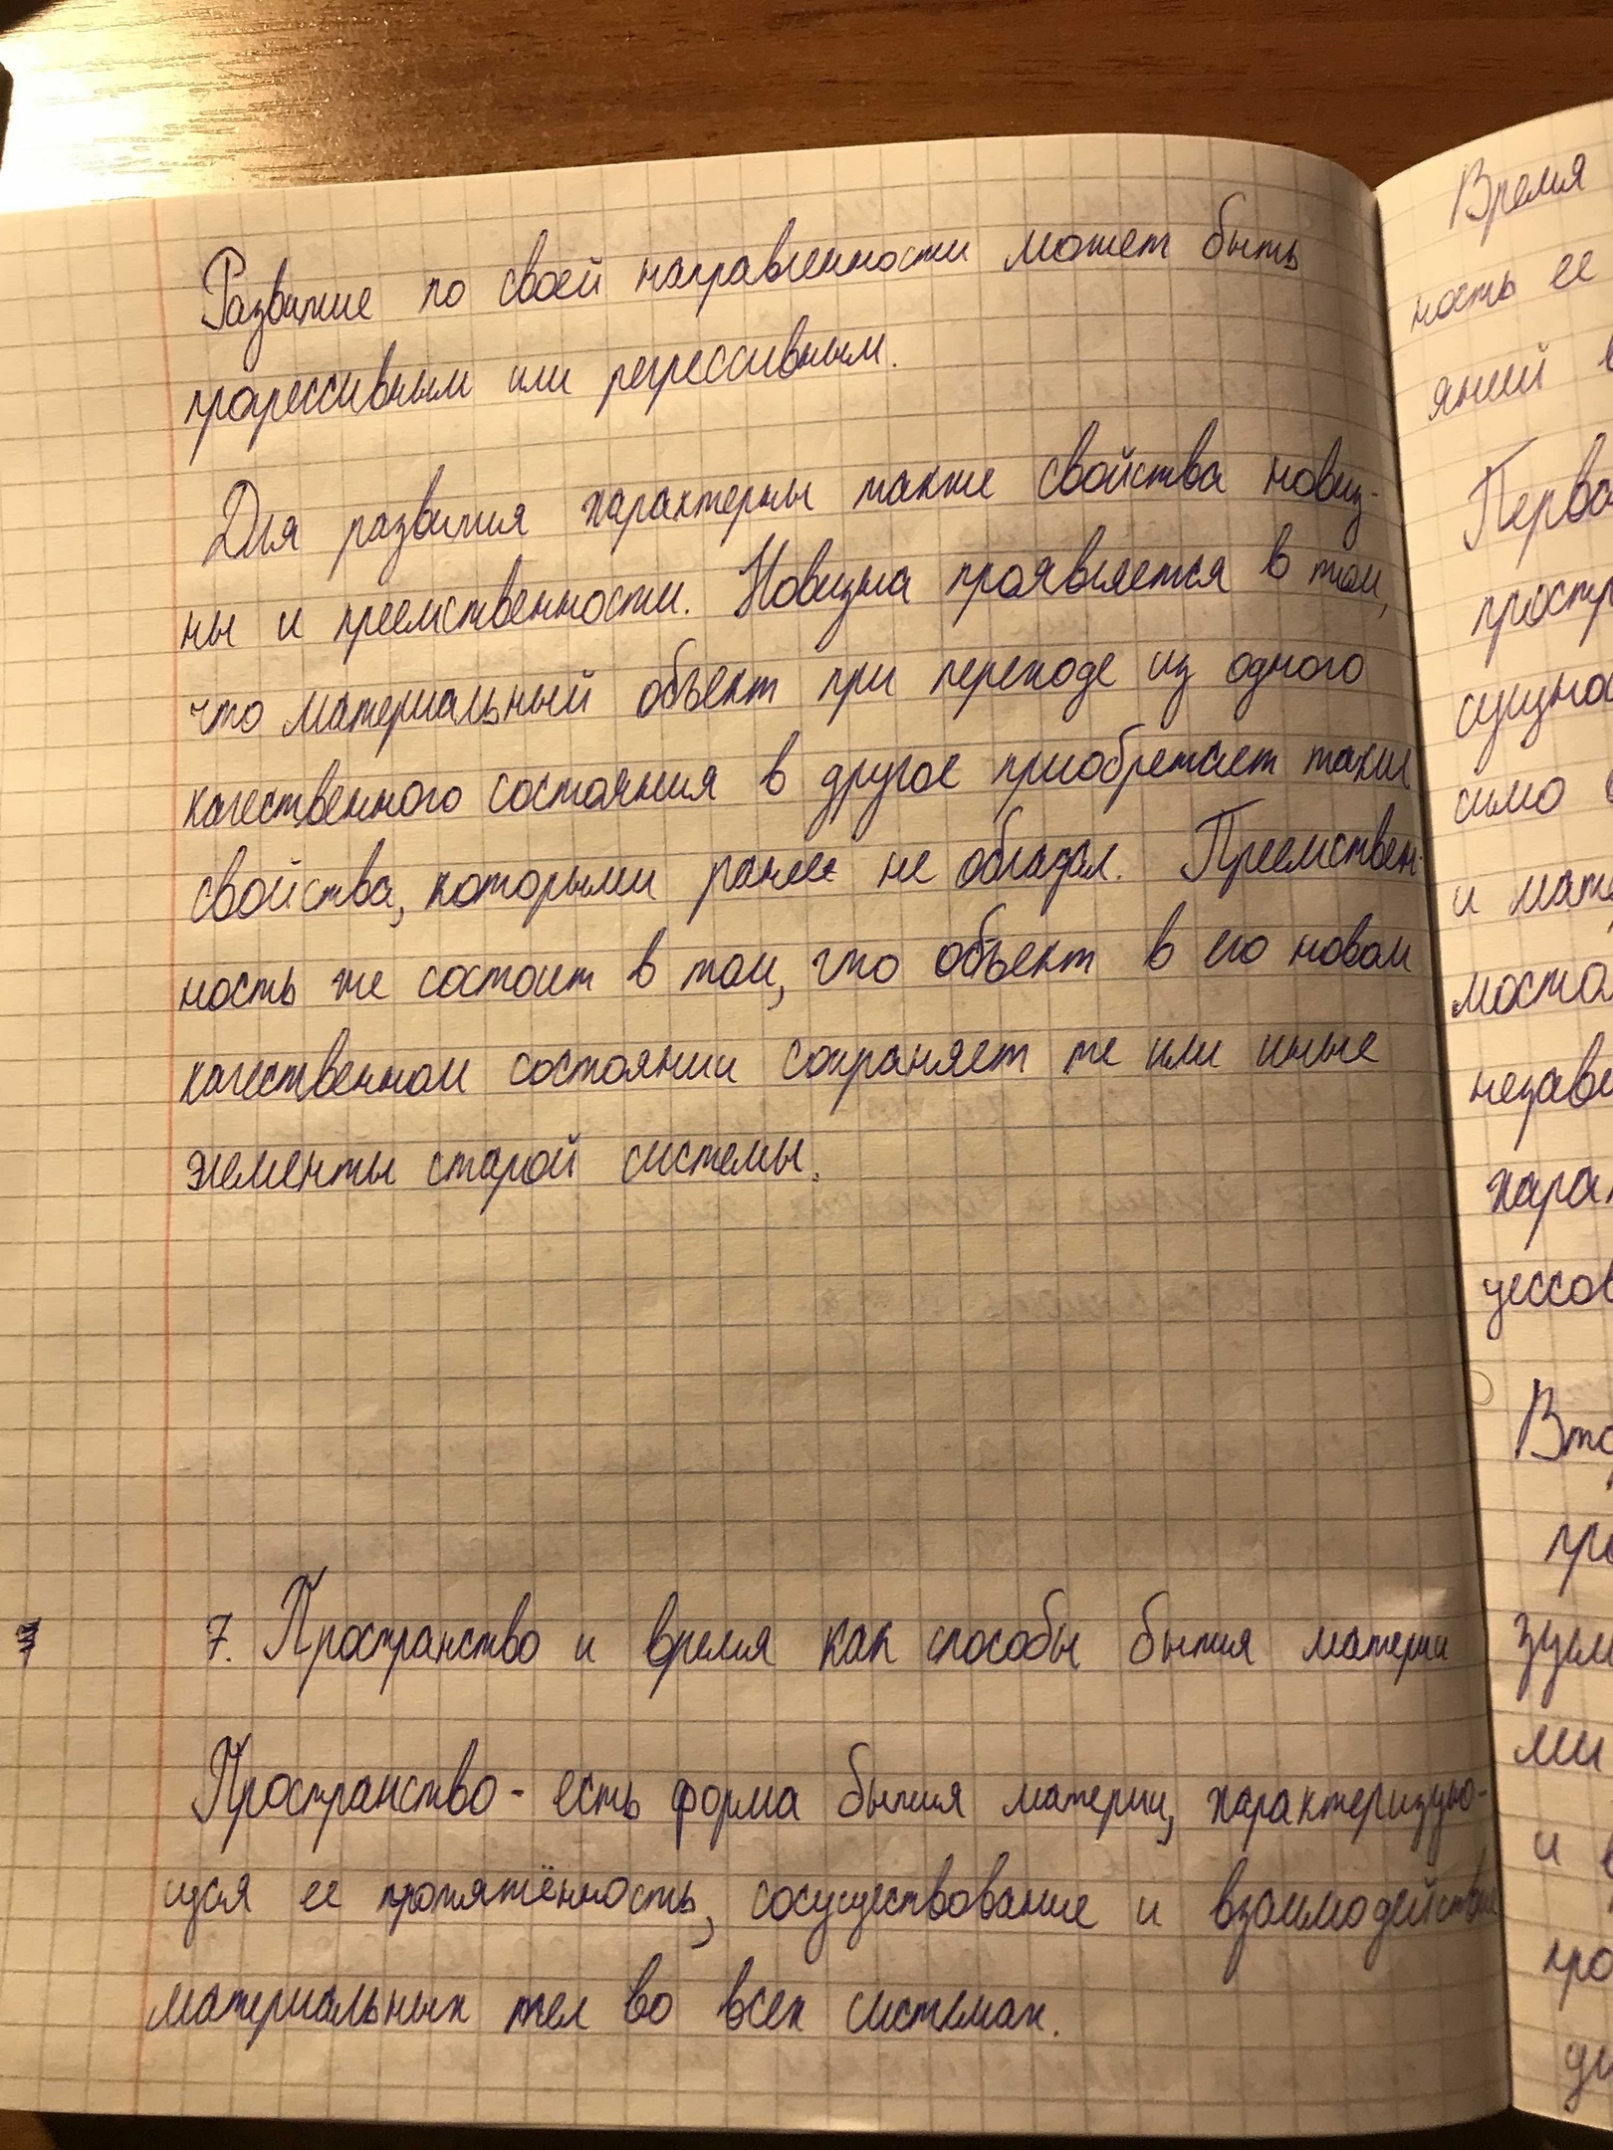 Развитие по своей направленности может быть
прогрессивным или регрессивным.
Для развития характерны также свойства новиз-
ны и преемственности. Новизна проявляется в том,
что материальный объект при переходе из одного
качественного состояния в другое приобретает такие
свойства, которыми ранее не обладал. Преемствен-
ность же состоит в том, что объект в его новом
качественном состоянии сохраняет те или иные
элементы старой системы.
7. Пространство и время как способы бытия материи
Пространство - есть форма бытия материи, характеризую-
щая ее протяжённость, сосуществование и взаимодействие
материальных тел во всех системах.
Время
ность ее
яний
и
ми
и